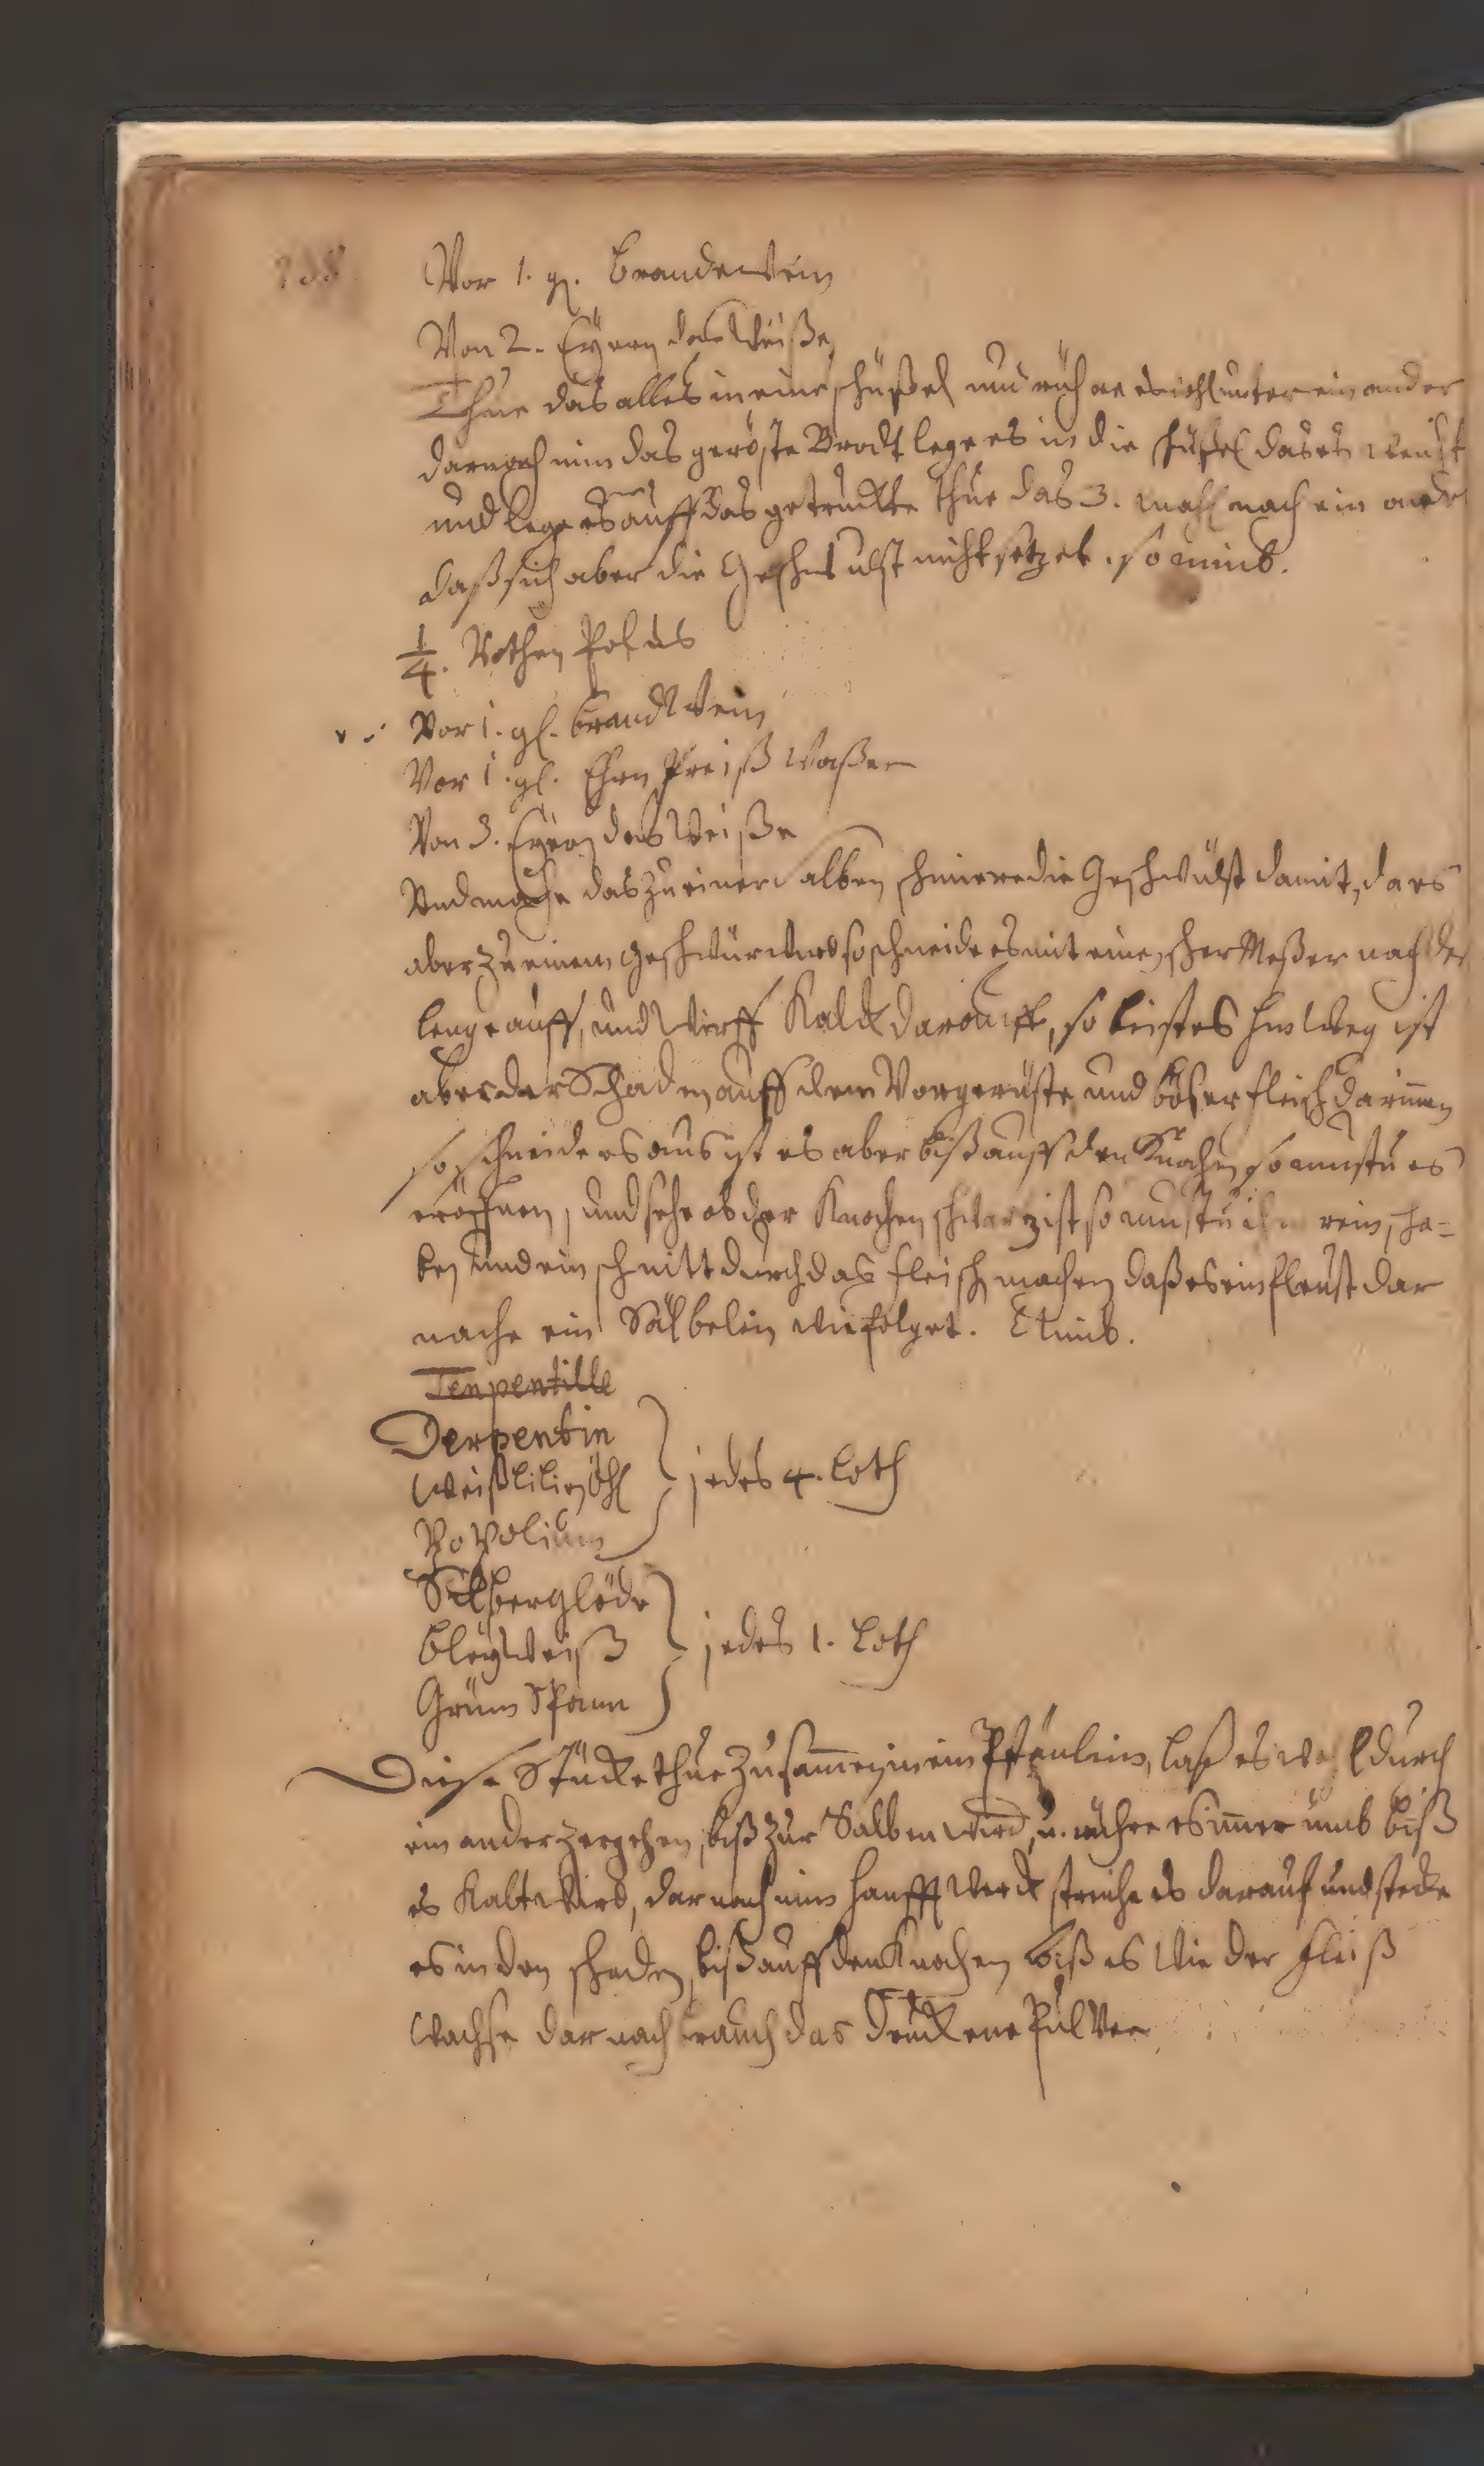 138
Vor 1. gl. Brandewein
Von 2. Eyern das Weiße,
Thue das alles in eine schüßel und rühre es wohl unter ein ander
darnach nim das geröste Brodt lege es in die schüßel das es weicht
und lege es auff das getruckte thue das 3. mahl nach ein ander
daß sich aber die Geschwulst nicht setzet. so nimb.
1/4. Rothen Polus
Vor 1. gl. brandtwein
Vor 1. gl. Ehrn Preiß Waßer
Von 3. Eyern das Weiße
Und mache das zu einer salben schmiere die Geschwülst damit, da es
aber zu einem geschwür wird so schneide es mit einen scher Meßer nach der
lenge auff, und Wirff Kalck darauff, so beist es hin Weg ist
aber der Schaden auff dem Vorgerüste und böser fleisch darinnen
so schneide es aus ist es aber biß auff den Knochen so mustu es
eröffnen, und sehe ob der Knochen schwartz ist so mustu ihn rein scha=
ben und ein schnitt durch das fleisch machen daß es ein fleust dar
nache ein Sälbelein wie folget. Nimb.
Terpentille
Derpentin
Weißlilien Öhl
Popolium
jedes 4. Loth
Silberglöde
bleyweiß
Grün Spann
jedes 1. Loth
Diese Stücke thue zusammen in ein Pfänlein, laß es wohl durch
ein ander zergehen, biß zur Salben wird, u. rühre es immer umb biß
es Kalt wird, dar nach nim hanff werck streiche es darauf und stecke
es in den schaden, biß auff den Knochen biß es Wie der fleiß
wachse dar nach brauch das druckene Pulver